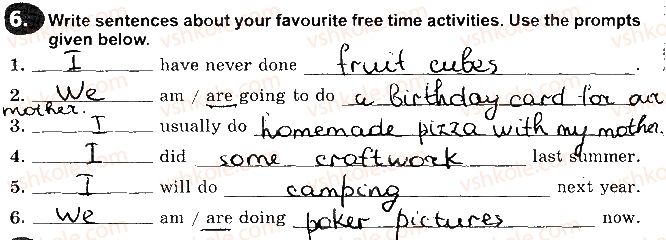 6. Write sentences about your favourite free time activities. Use the prompts
given below.
1. I have never done fruit cubes.
2. We am / are going to do a Birthday card for our
mother.
3. I usually do homemade pizza with my mother.
4. I did some craftwork last summer.
5. I will do camping next year.
6. We am / are doing poker pictures now.